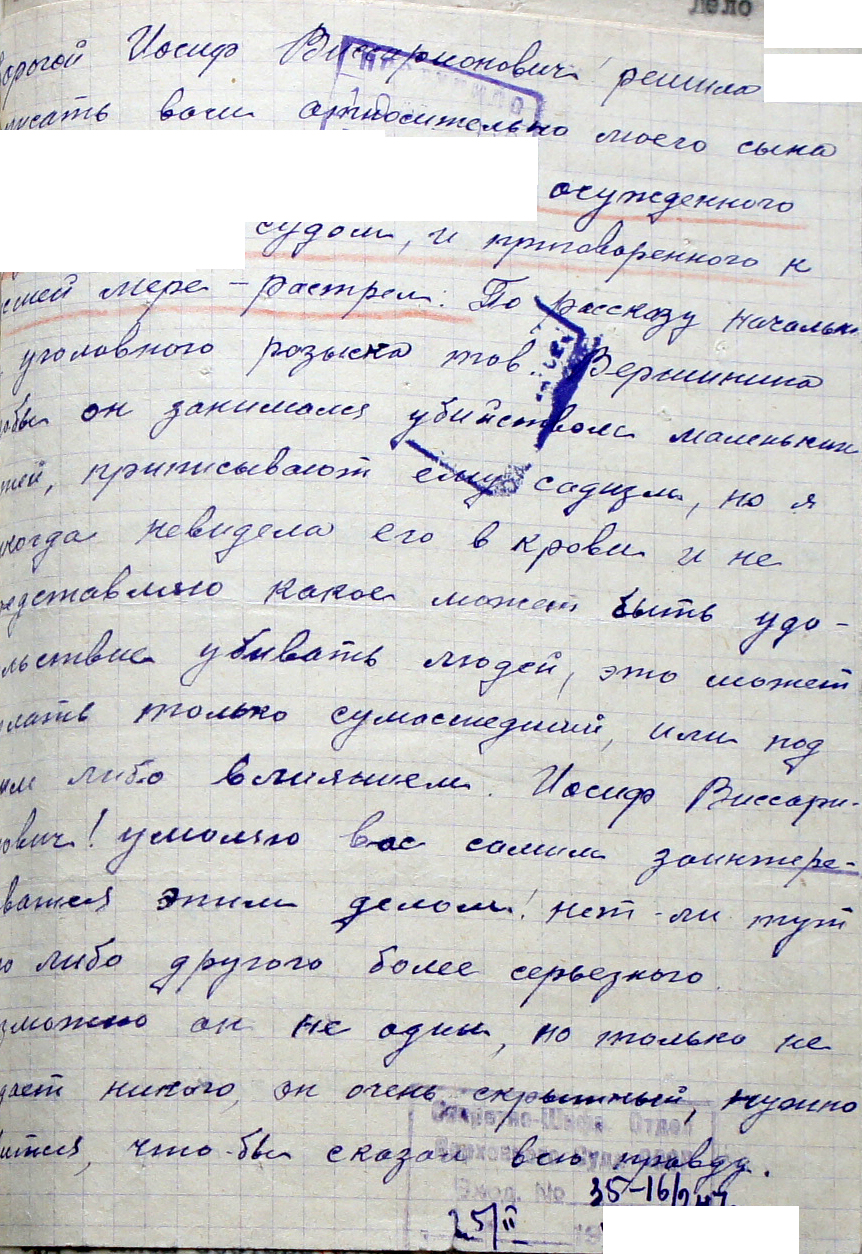 Дело
орогой Иосиф Виссарионович! решила
писать вам относительно моего сына
осужденного
судом, и приговоренного к
сшей мере – растрел. По рассказу начальн
уголовного розыска тов. Вершинина
кобы он занимался убийством маленьких
тей, приписывают ему садизм, но я
икогда невидела его в крови и не
редставляю какое может быть удо-
льствие убивать людей, это может
елать только сумасшедший, или под
ким либо влияньем. Иосиф Виссари-
ович! умоляю вас самим заинтере-
ваться этим делом! нет-ли тут
го либо другого более серьезного.
зможно он не один, но только не
дает никого, он очень скрытный, нужно
биться, что-бы сказал всю правду.
Секретно-Шифр. Отдел
Верховного Суда
Вход. №
35-16/
25/II